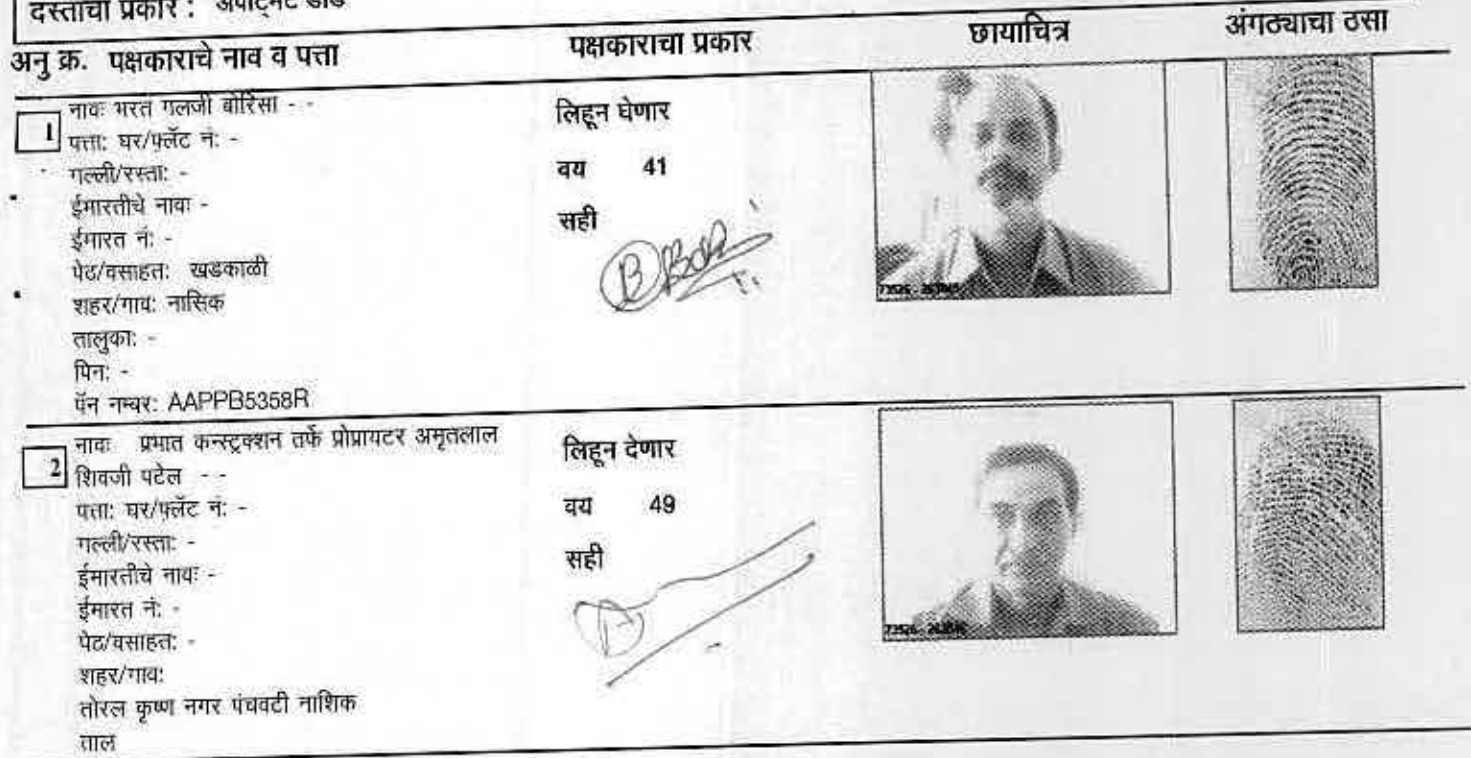 दस्ताचा प्रकार : अपार्टमेंट डीड
अनु क्र. पक्षकाराचे नाव व पत्ता पक्षकाराचा प्रकार छायाचित्र अंगठ्याचा ठसा
1 नावः भरत गलजी बोरिसा - -
पत्ताः घर/फ्लॅट नं: -
गल्ली/रस्ताः -
ईमारतीचे नावः -
ईमारत नं: -
पेठ/वसाहतः खडकाळी
शहर/गावः नासिक
तालुकाः -
पिनः -
पॅन नम्बर: AAPPB5358R
लिहून घेणार
वय 41
सही
2 नावः प्रभात कन्स्ट्रक्शन तर्फे प्रोप्रायटर अमृतलाल
शिवजी पटेल - -
पत्ताः घर/फ्लॅट नं: -
गल्ली/रस्ताः -
ईमारतीचे नावः -
ईमारत नं: -
पेठ/वसाहतः -
शहर/गावः
तोरल कृष्ण नगर पंचवटी नाशिक
ताल
लिहून देणार
वय 49
सही